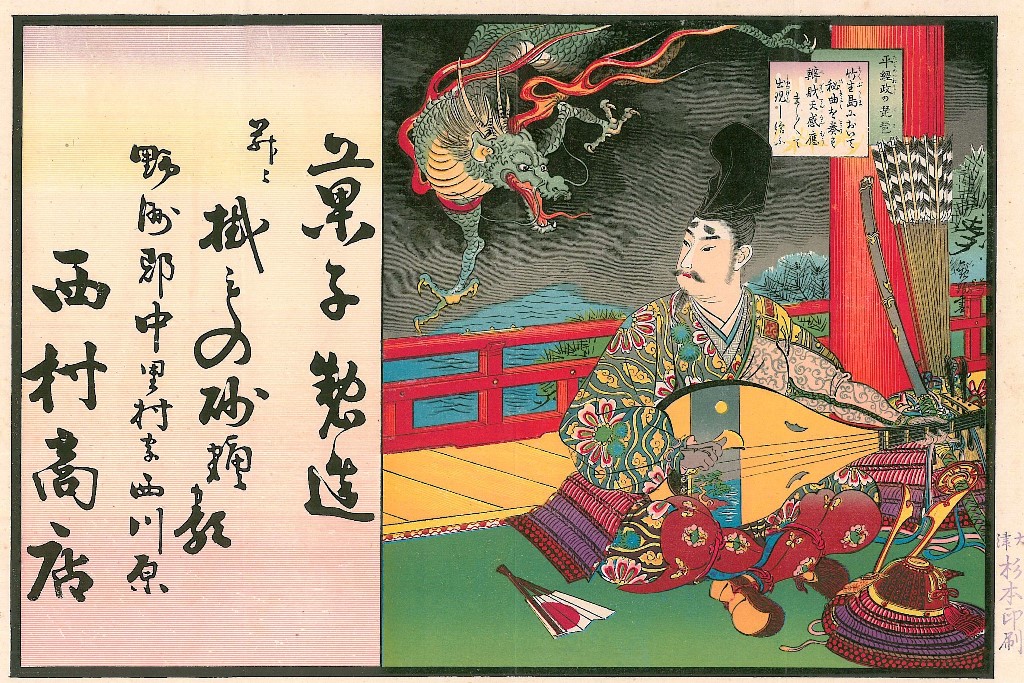 平經政の琵琶
竹生島において
秘曲を奏す
辨財天感應
まし〱て
出現し給ふ
菓子製造
并ニ
掛もの砂糖類
野洲郡中里村字西川原
西村商店
大津
杉本印刷